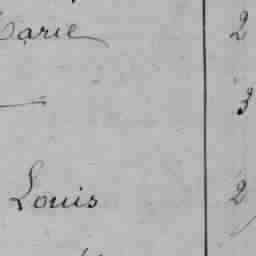 Marie 2
— 3
Louis 2